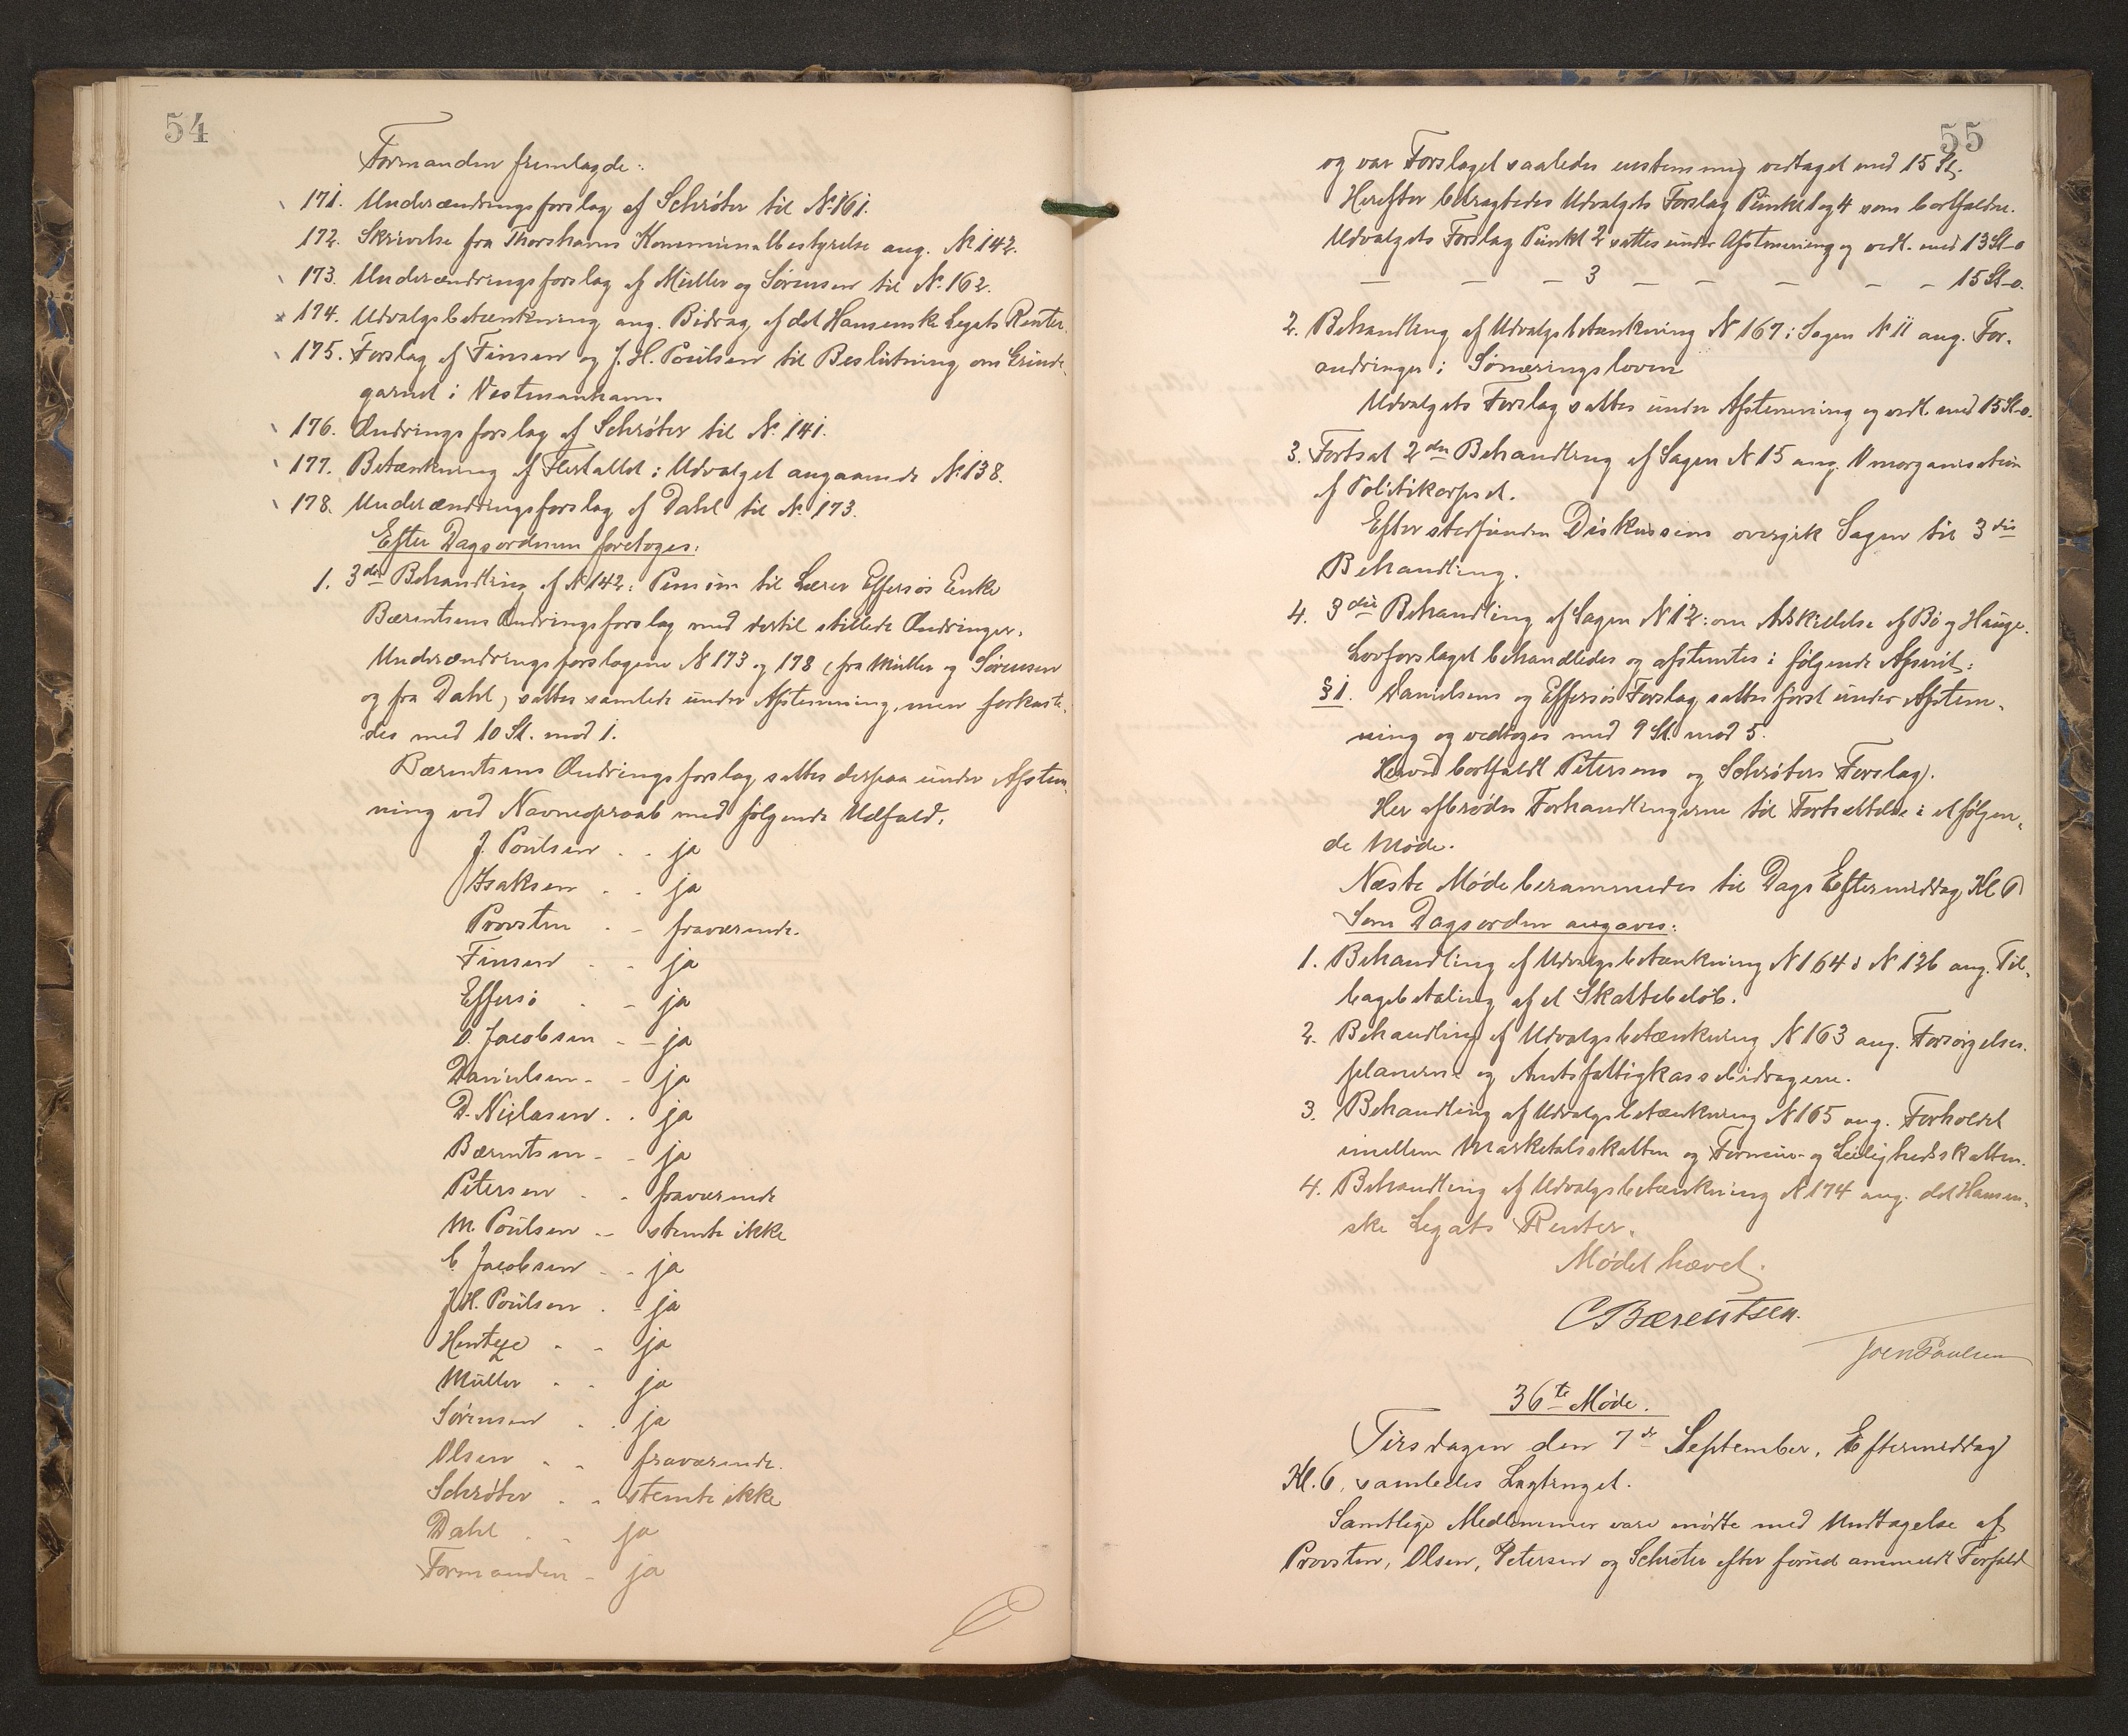 54
Formanden fremlagde:
171. Underændringsforslag af Schrøter til № 161.
172. Skrivelse fra Thorshavns Kommunalbestyrelse ang. № 142.
173. Underændringsforslag af Müller og Sørensen til № 162.
174. Udvalgsbetænkning ang. Bidrag af det Hansenske Legats Renter.
175. Forslag af Finsen og J. H. Poulsen til Beslutning om Grinde-
garnet i Vestmanhavn.
176. Ændringsforslag af Schrøter til № 141.
177. Betænkning af Flertallet i Udvalget angaaende № 138.
178. Underændringsforslag af Dahl til № 173.
Efter Dagsordenen foretoges:
1. 3die Behandling af № 142: Pension til Lærer Effersøs Enke
Bærentsens Ændringsforslag med dertil stillede Ændringer.
Underændringsforslagene № 173 og 178 (fra Müller og Sørensen
og fra Dahl) sattes samlede under Afstemning, men forkaste-
des med 10 St. mod 1.
Bærentsens Ændringsforslag sattes derpaa under Afstem-
ning ved Navneopraab med følgende Udfald.
J. Poulsen . . ja
Isaksen . . ja
Provsten . - fraværende.
Finsen . . ja
Effersø . - ja
O. Jacobsen - - ja
Danielsen - - ja
D. Niclasen . . ja
Bærentsen - - ja
Petersen . . fraværende
M. Poulsen - - stemte ikke
C. Jacobsen - - ja
J. H. Poulsen . - ja
Hentze . . ja
Müller . . ja
Sørensen . . ja
Olsen . . fraværende.
Schrøter . . stemte ikke
Dahl . . ja
Formanden - ja
55
og var Forslaget saaledes eenstemmig vedtaget med 15 St.
Herefter betragtedes Udvalgets Forslag Punkt 1 og 4 som bortfaldne.
Udvalgets Forslag Punkt 2 sattes under Afstemning og vedt. med 13 St-o
— — — 3 — — — — — 15 St-o.
2. Behandling af Udvalgsbetænkning № 167 i Sagen № 11 ang. For-
andringer i Sønæringsloven
Udvalgets Forslag sattes under Afstemning og vedt. med 15 St-o.
3. Fortsat 2den Behandling af Sagen № 15 ang. Omorganisation
af Politikorpset.
Efter stedfunden Diskussion overgik Sagen til 3die
Behandling.
4. 3die Behandling af Sagen № 12: om Adskillelse af Bø og Hauge.
Lovforslaget behandledes og afstemtes i følgende Afsnit:
§ 1. Danielsens og Effersøs Forslag sattes først under Afstem-
ning og vedtoges med 9 St. mod 5.
Herved bortfaldt Petersens og Schrøters Forslag.
Her afbrødes Forhandlingerne til Fortsættelse i et følgen-
de Møde.
Næste Møde berammedes til Dags Eftermiddag Kl. 6
Som Dagsorden angaves:
1. Behandling af Udvalgsbetænkning № 164 i № 126 ang. Til-
bagebetaling af et Skattebeløb.
2. Behandling af Udvalgsbetænkning № 163 ang. Forsørgelses-
planerne og Amtsfattigkassebidragene.
3. Behandling af Udvalgsbetænkning № 165 ang. Forholdet
imellem Marketalsskatten og Formue- og Leilighedsskatten.
4. Behandling af Udvalgsbetænkning № 174 ang. det Hansen-
ske Legats Renter.
Mødet hævet.
C Bærentsen.
Joen Poulsen
36te Møde.
Tirsdagen den 7de September, Eftermiddag
Kl. 6, samledes Lagtinget.
Samtlige Medlemmer vare mødte med Undtagelse af
Provsten, Olsen, Petersen og Schrøter efter forud anmeldt Forfald